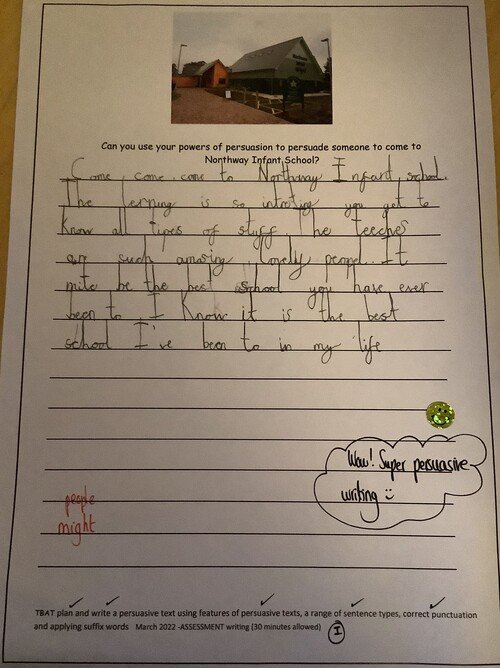 Can you use your powers of persuasion to persuade someone to come to
Northway Infant School?
Come, come, come to Northway Infant school.
The lerning is so intrsting you get to
Know all types of stuff. The teeches
ar such amasing, lovely peopel. It
mite be the best school you have ever
been to. I Know it is the best
school I've been to in my life
Wow! Super persuasive
writing
people
might
TBAT plan and write a persuasive text using features of persuasive texts, a range of sentence types, correct punctuation
and applying suffix words March 2022 -ASSESSMENT writing (30 minutes allowed)
I